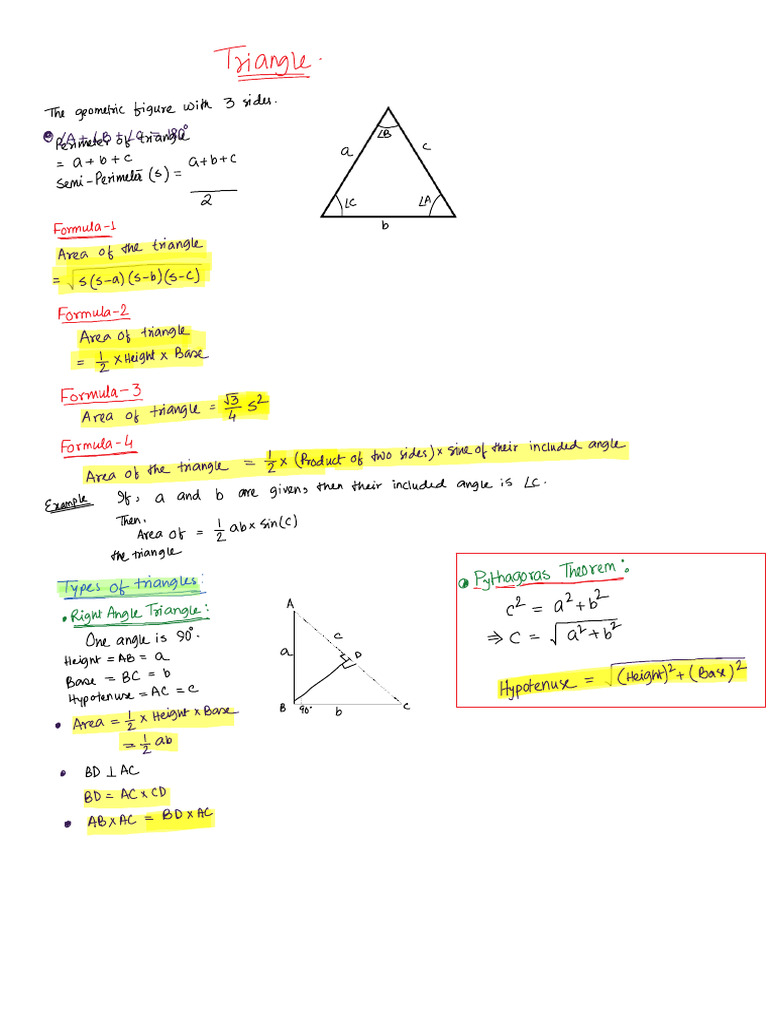 Triangle.
The geometric figure with 3 sides.
∠A+∠B+∠C = 180°
Perimeter of triangle
= a+b+c
Semi-Perimeter (s) = a+b+c / 2
∠B
a
c
∠C
∠A
b
Formula-1
Area of the triangle
= √s(s-a)(s-b)(s-c)
Formula-2
Area of triangle
= 1/2 × Height × Base
Formula-3
Area of triangle = √3/4 s²
Formula-4
Area of the triangle = 1/2 × (Product of two sides) × sine of their included angle
Example If, a and b are given, then their included angle is ∠C.
Then,
Area of = 1/2 ab × sin(C)
the triangle
Types of triangles:
• Right Angle Triangle:
One angle is 90°.
Height = AB = a
Base = BC = b
Hypotenuse = AC = c
• Area = 1/2 × Height × Base
= 1/2 ab
• BD ⊥ AC
BD = AC × CD
• AB × AC = BD × AC
A
c
a
D
B
90°
b
C
• Pythagoras Theorem:
c² = a²+b²
⇒ c = √a²+b²
Hypotenuse = √(Height)²+(Base)²